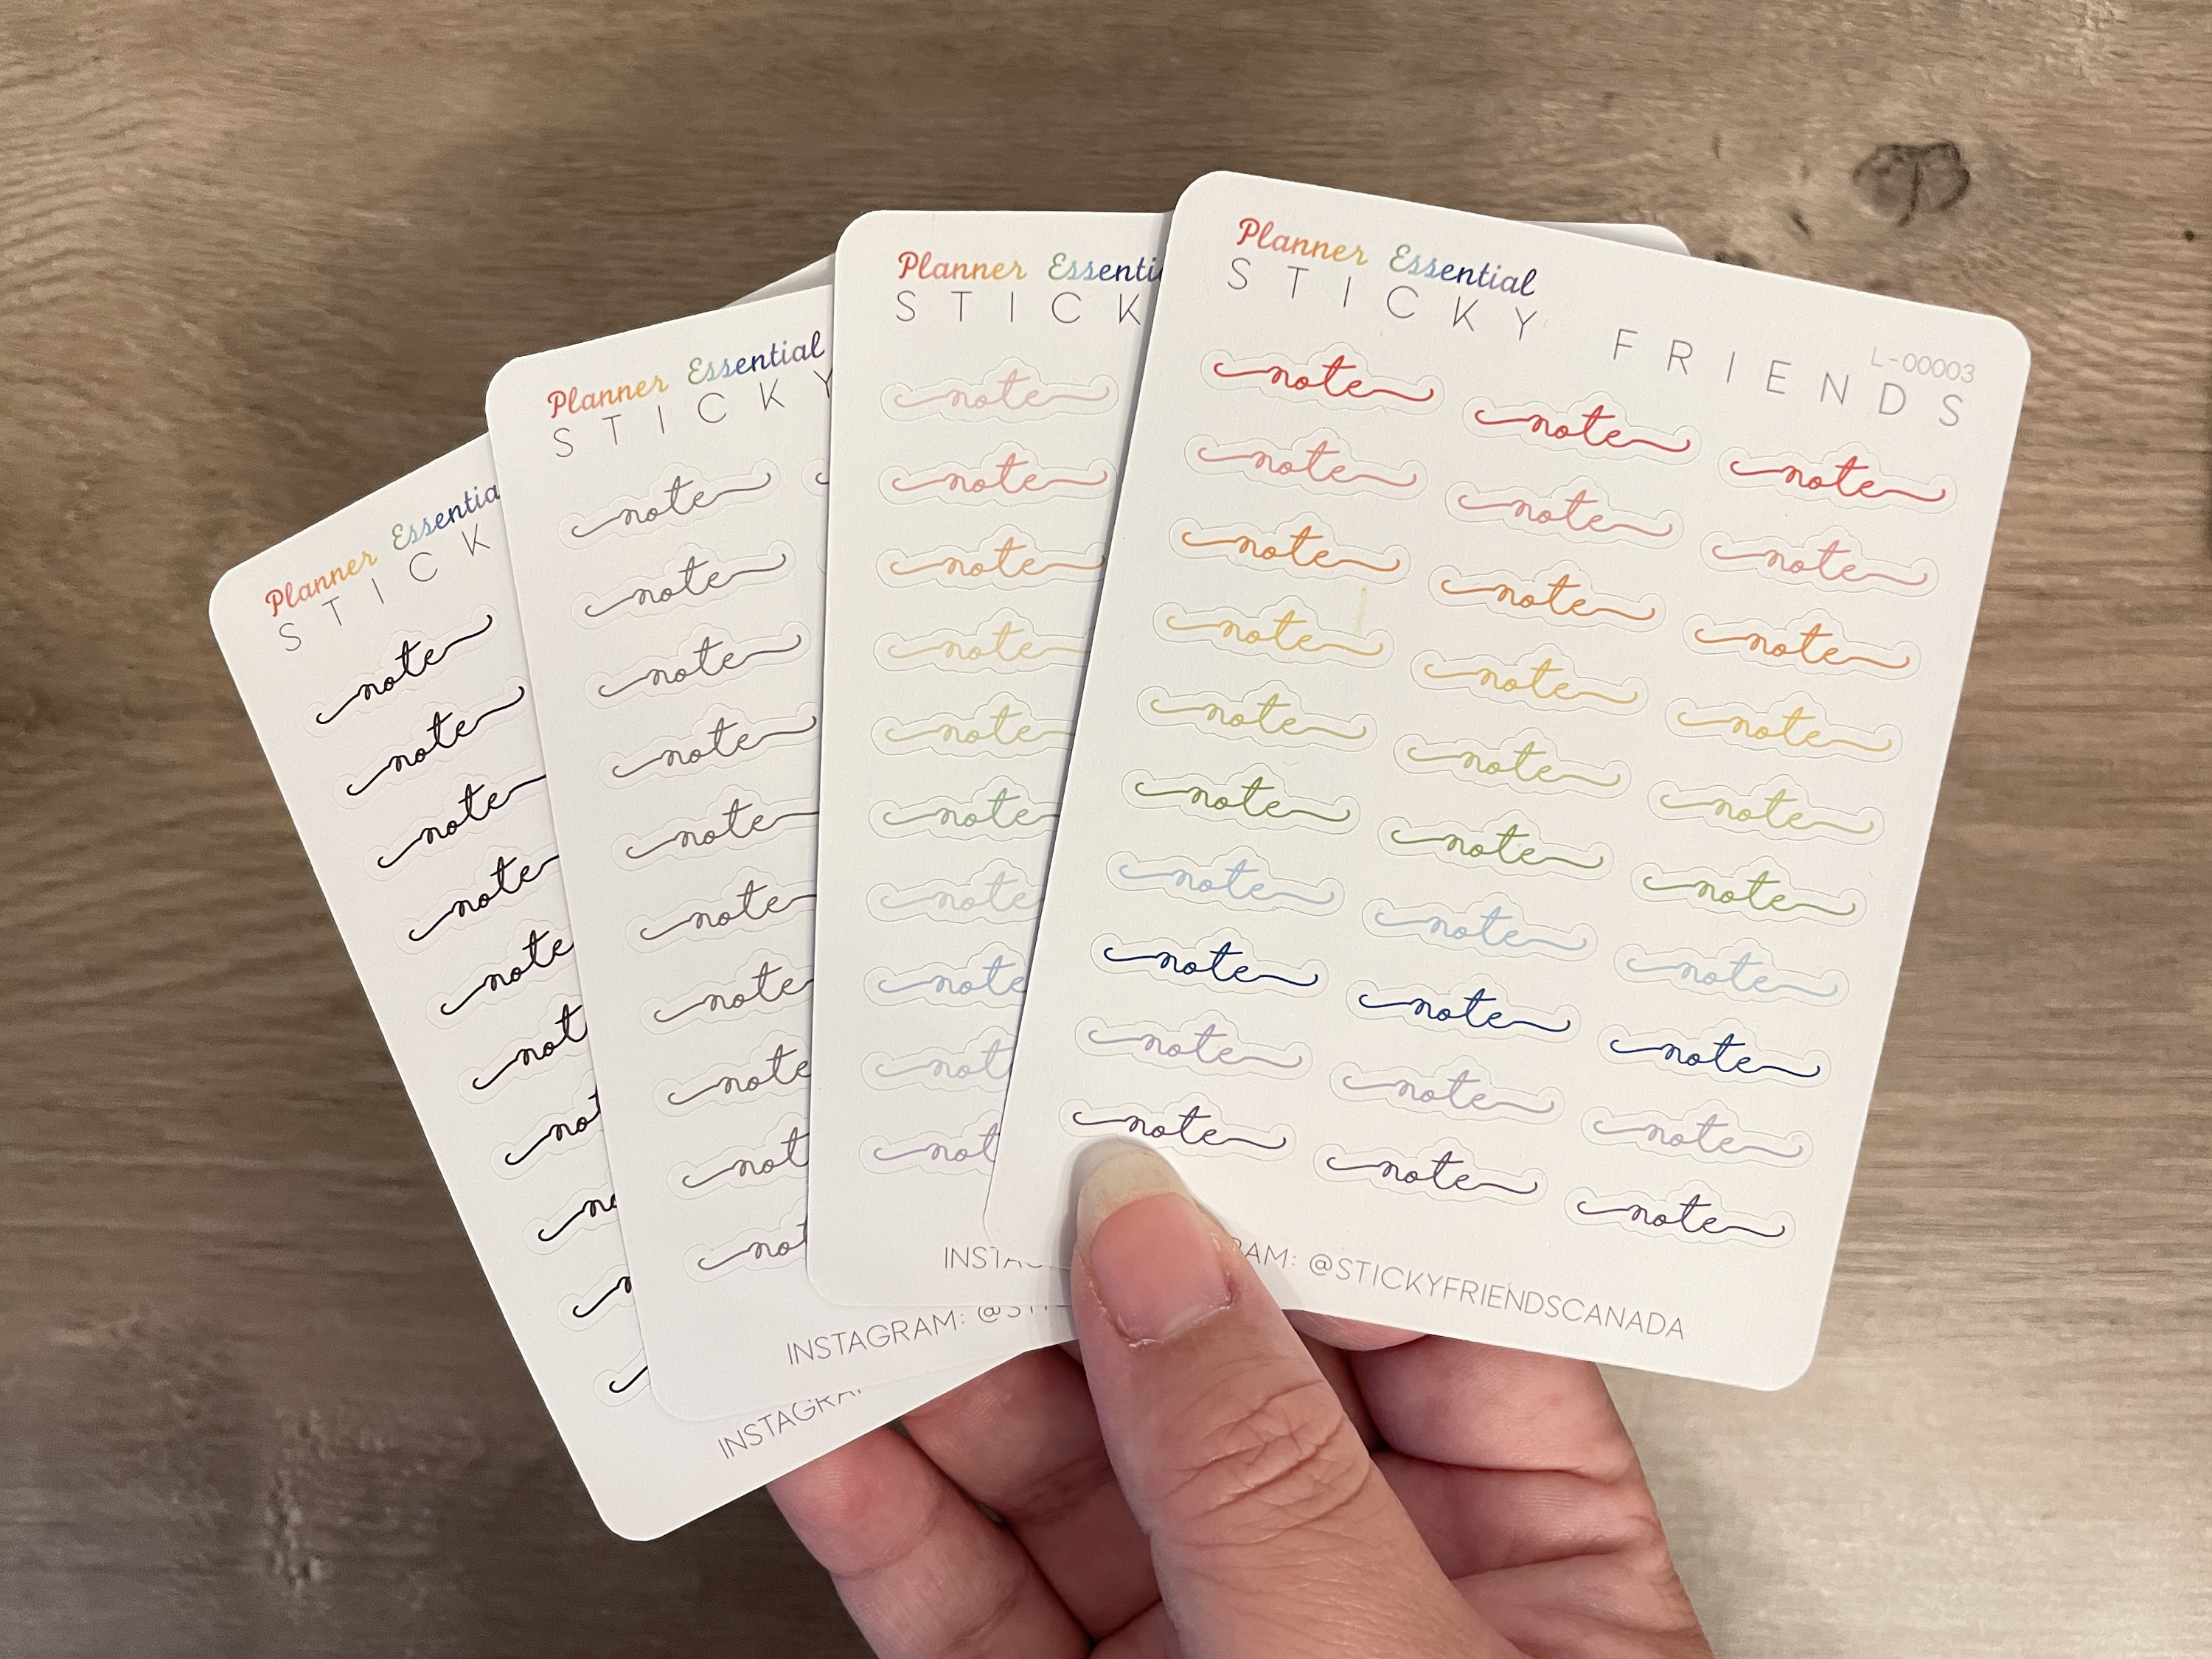 Planner Essentia
STICK
note
note
note
note
note
not
no
no
INSTAGRA
Planner Essential
STICKY
note
note
note
note
note
note
note
note
not
no
INSTAGRAM: @ST
Planner Essenti
STICK
note
note
note
note
note
note
note
note
not
not
INSTA
Planner Essential
L-00003
STICKY FRIENDS
note note note
note note note
note note note
note note note
note note note
note note note
note note note
note note note
note note note
note note note
RAM: @STICKYFRIENDSCANADA